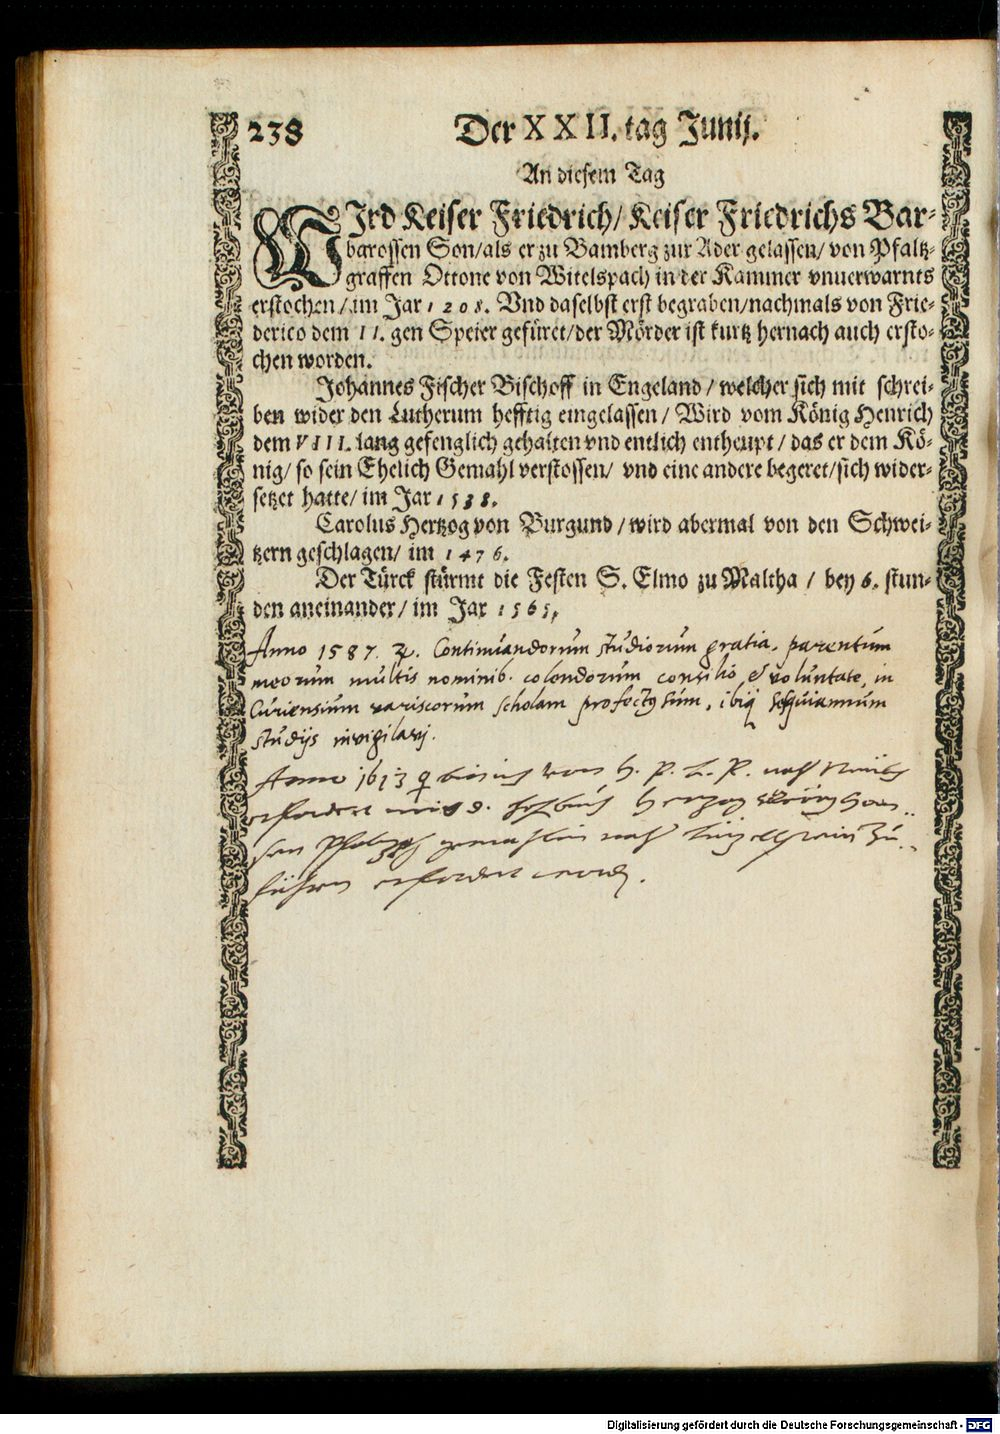 238
Der XXII. tag Junij.
An diesem Tag
WIrd Keiser Friedrich/ Keiser Friedrichs Bar-
barossen Son/als er zu Bamberg zur Ader gelassen/ von Pfaltz-
graffen Ottone von Witelspach in der Kammer vnuerwarnts
erstochen/im Jar 1208. Vnd daselbst erst begraben/nachmals von Frie-
derico dem II. gen Speier gefüret/der Mörder ist kurtz hernach auch ersto-
chen worden.
Johannes Fischer Bischoff in Engeland/ welcher sich mit schrei-
ben wider den Lutherum hefftig eingelassen/ Wird vom König Henrich
dem VIII. lang gefenglich gehalten vnd entlich entheupt/ das er dem Kö-
nig/ so sein Ehelich Gemahl verstossen/ vnd eine andere begeret/sich wider-
setzet hatte/ im Jar 1538.
Carolus Hertzog von Burgund/wird abermal von den Schwei-
tzern geschlagen/ im 1476.
Der Türck stürmt die Festen S. Elmo zu Maltha/ bey 6. stun-
den aneinander/ im Jar 1565.
Anno 1587. ♃. Continuandorum studiorum gratia, parentum
meorum multis nominib. colendorum consilio & voluntate, in
Curiensium variscorum scholam profectus sum, ibiq sesquiannum
studijs invigilavi.
Anno 1613 ♀ bin ich von H. P. L. P. nach
erfordert Hertzog
Pfaltzg gemahlin nach zu
führen erfordert word.
Digitalisierung gefördert durch die Deutsche Forschungsgemeinschaft - DFG